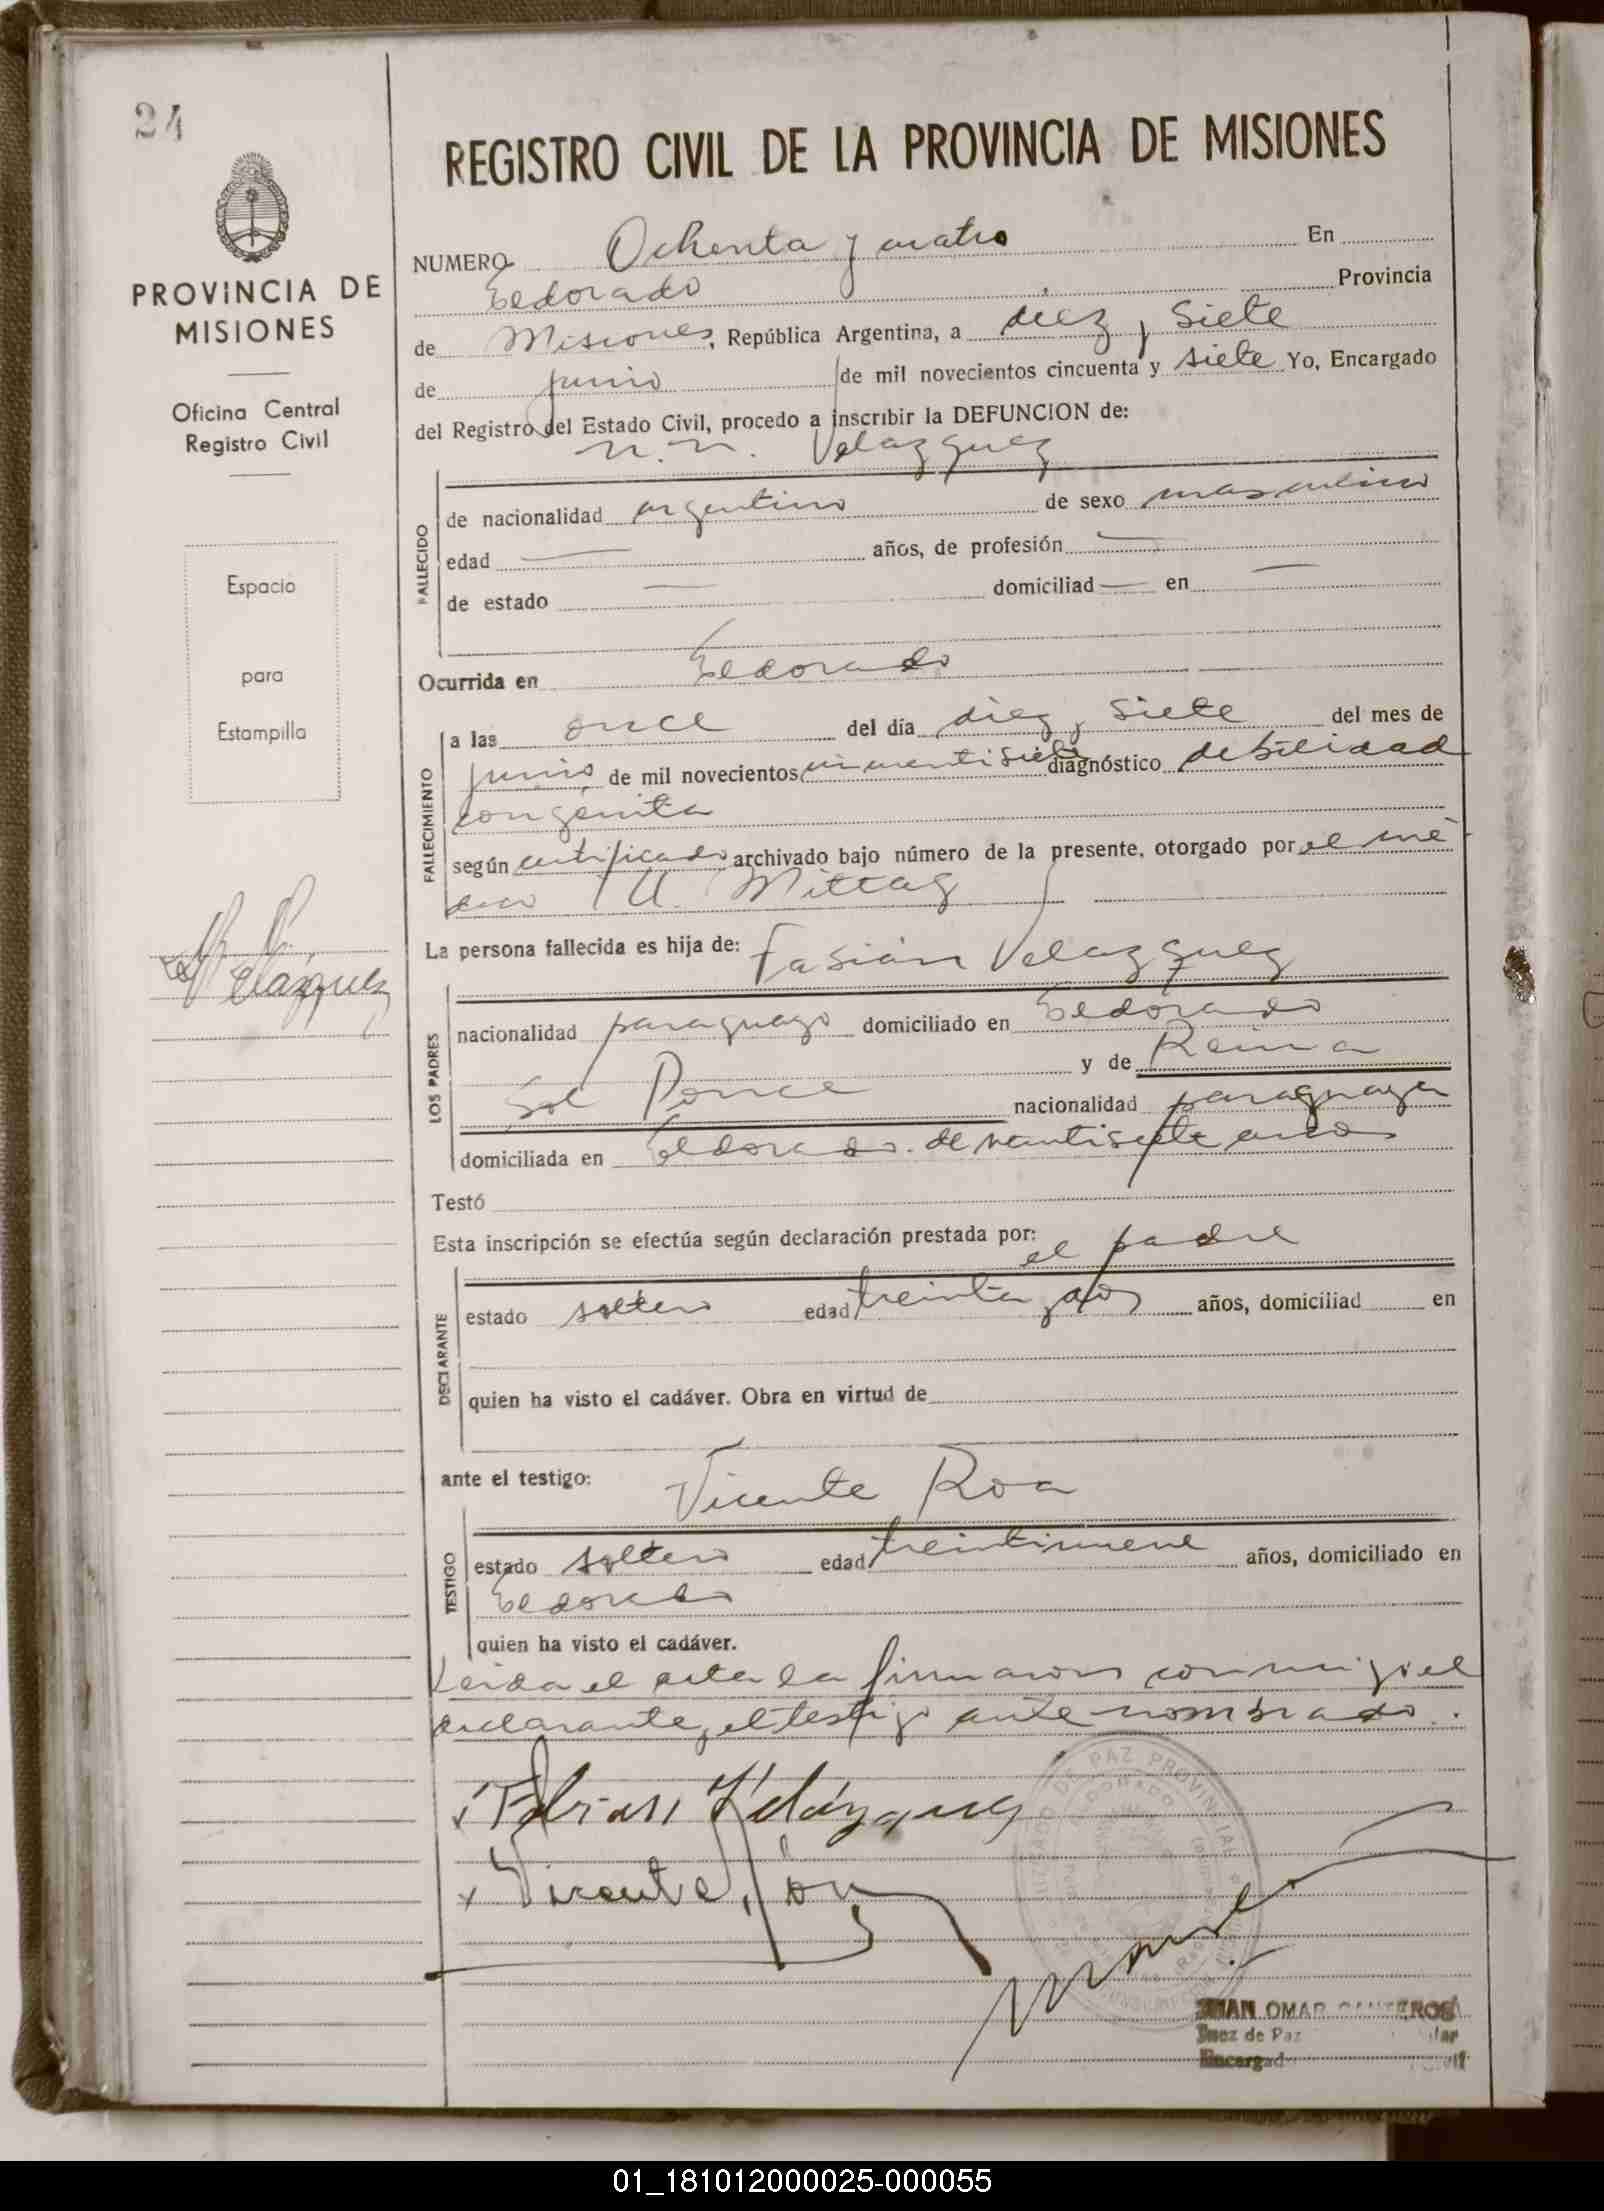 24
REGISTRO CIVIL DE LA PROVINCIA DE MISIONES
PROVINCIA DE
MISIONES
Oficina Central
Registro Civil
Espacio
para
Estampilla
NUMERO Ochenta y cuatro En
Eldorado Provincia
de Misiones, República Argentina, a diez y siete
de junio de mil novecientos cincuenta y siete Yo, Encargado
del Registro del Estado Civil, procedo a inscribir la DEFUNCION de:
N.N. Velazquez
FALLECIDO
de nacionalidad argentino de sexo masculino
edad — años, de profesión —
de estado — domiciliad — en —
Ocurrida en Eldorado
FALLECIMIENTO
a las once del día diez y siete del mes de
junio de mil novecientos cincuentisiete diagnóstico debilidad
congénita
según certificado archivado bajo número de la presente, otorgado por el mé
dico U. Mittag
N.N.
Velázquez
La persona fallecida es hija de: Fabián Velazquez
LOS PADRES
nacionalidad paraguayo domiciliado en Eldorado
y de Reina
Sol Ponce nacionalidad paraguaya
domiciliada en Eldorado. de veintisiete años
Testó
Esta inscripción se efectúa según declaración prestada por:
el padre
DECLARANTE
estado soltero edad treinta y dos años, domiciliad en
quien ha visto el cadáver. Obra en virtud de
ante el testigo: Vicente Roa
TESTIGO
estado soltero edad treintinueve años, domiciliado en
Eldorado
quien ha visto el cadáver.
Leida el acta la firmaron conmigo el
declarante y el testigo ante nombrado.
x Fabian Velázquez
x Vicente Roa
JUZGADO DE PAZ PROVINCIAL
JUAN OMAR
Juez de Paz
Encargad
01_181012000025-000055